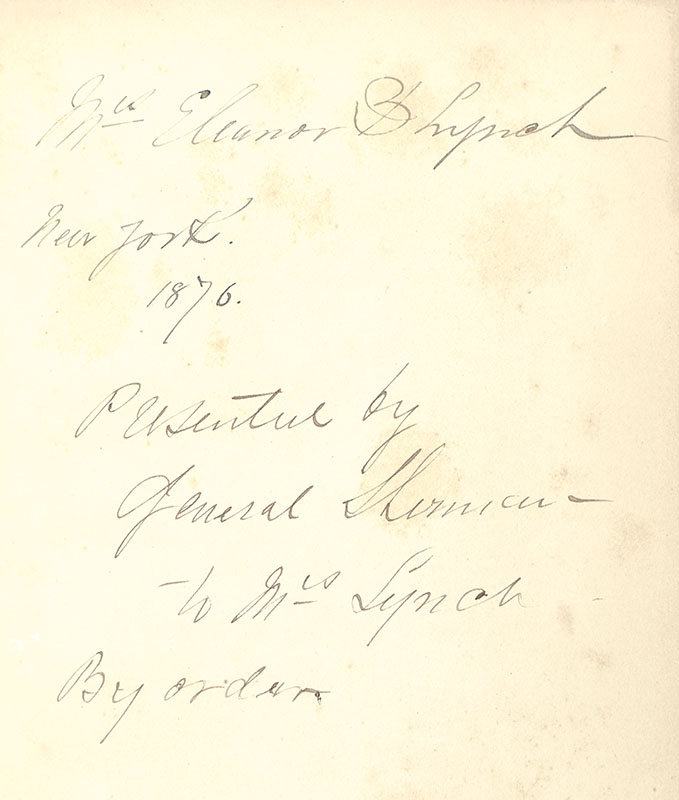 Mrs Eleanor B Lynch
New York.
1876.
Presented by
General Sherman -
to Mrs Lynch
By order